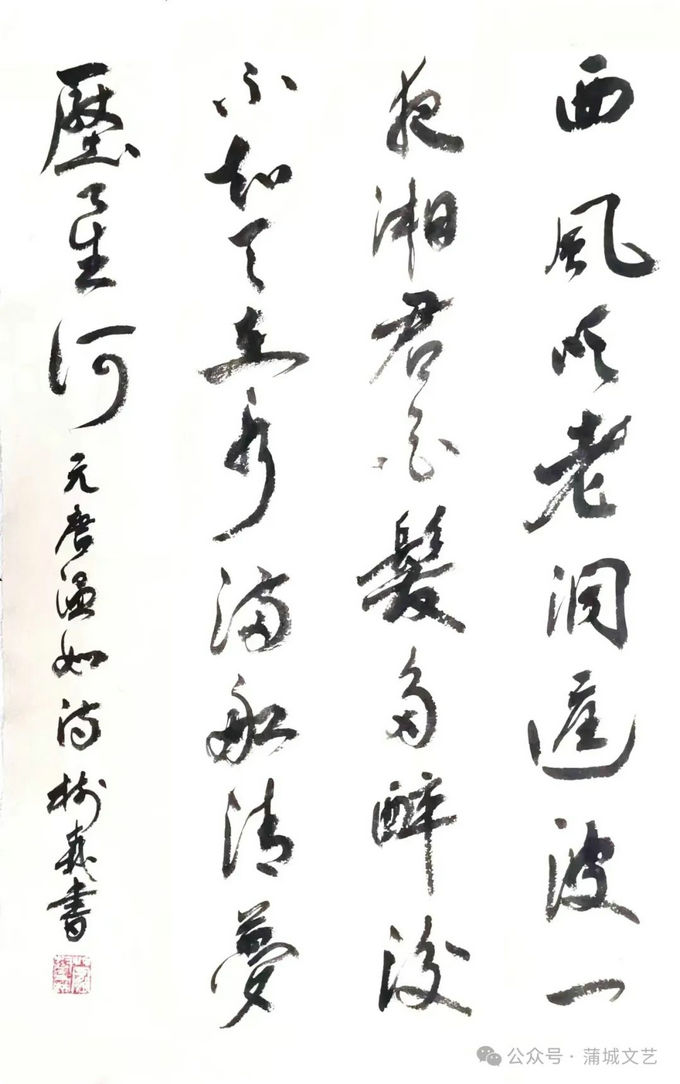 西風吹老洞庭波一
夜湘君白髮多醉後
不知天在水滿船清夢
壓星河
元唐溫如詩樹義書
公众号 · 蒲城文艺